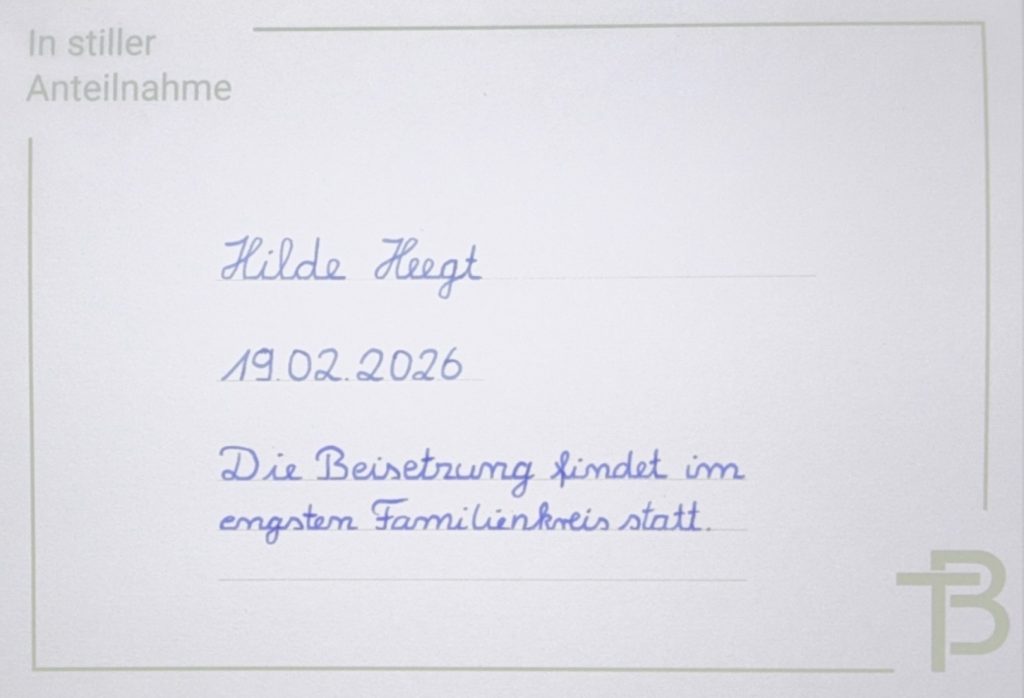 In stiller
Anteilnahme
Hilde Heegt
19.02.2026
Die Beisetzung findet im
engsten Familienkreis statt.
TB